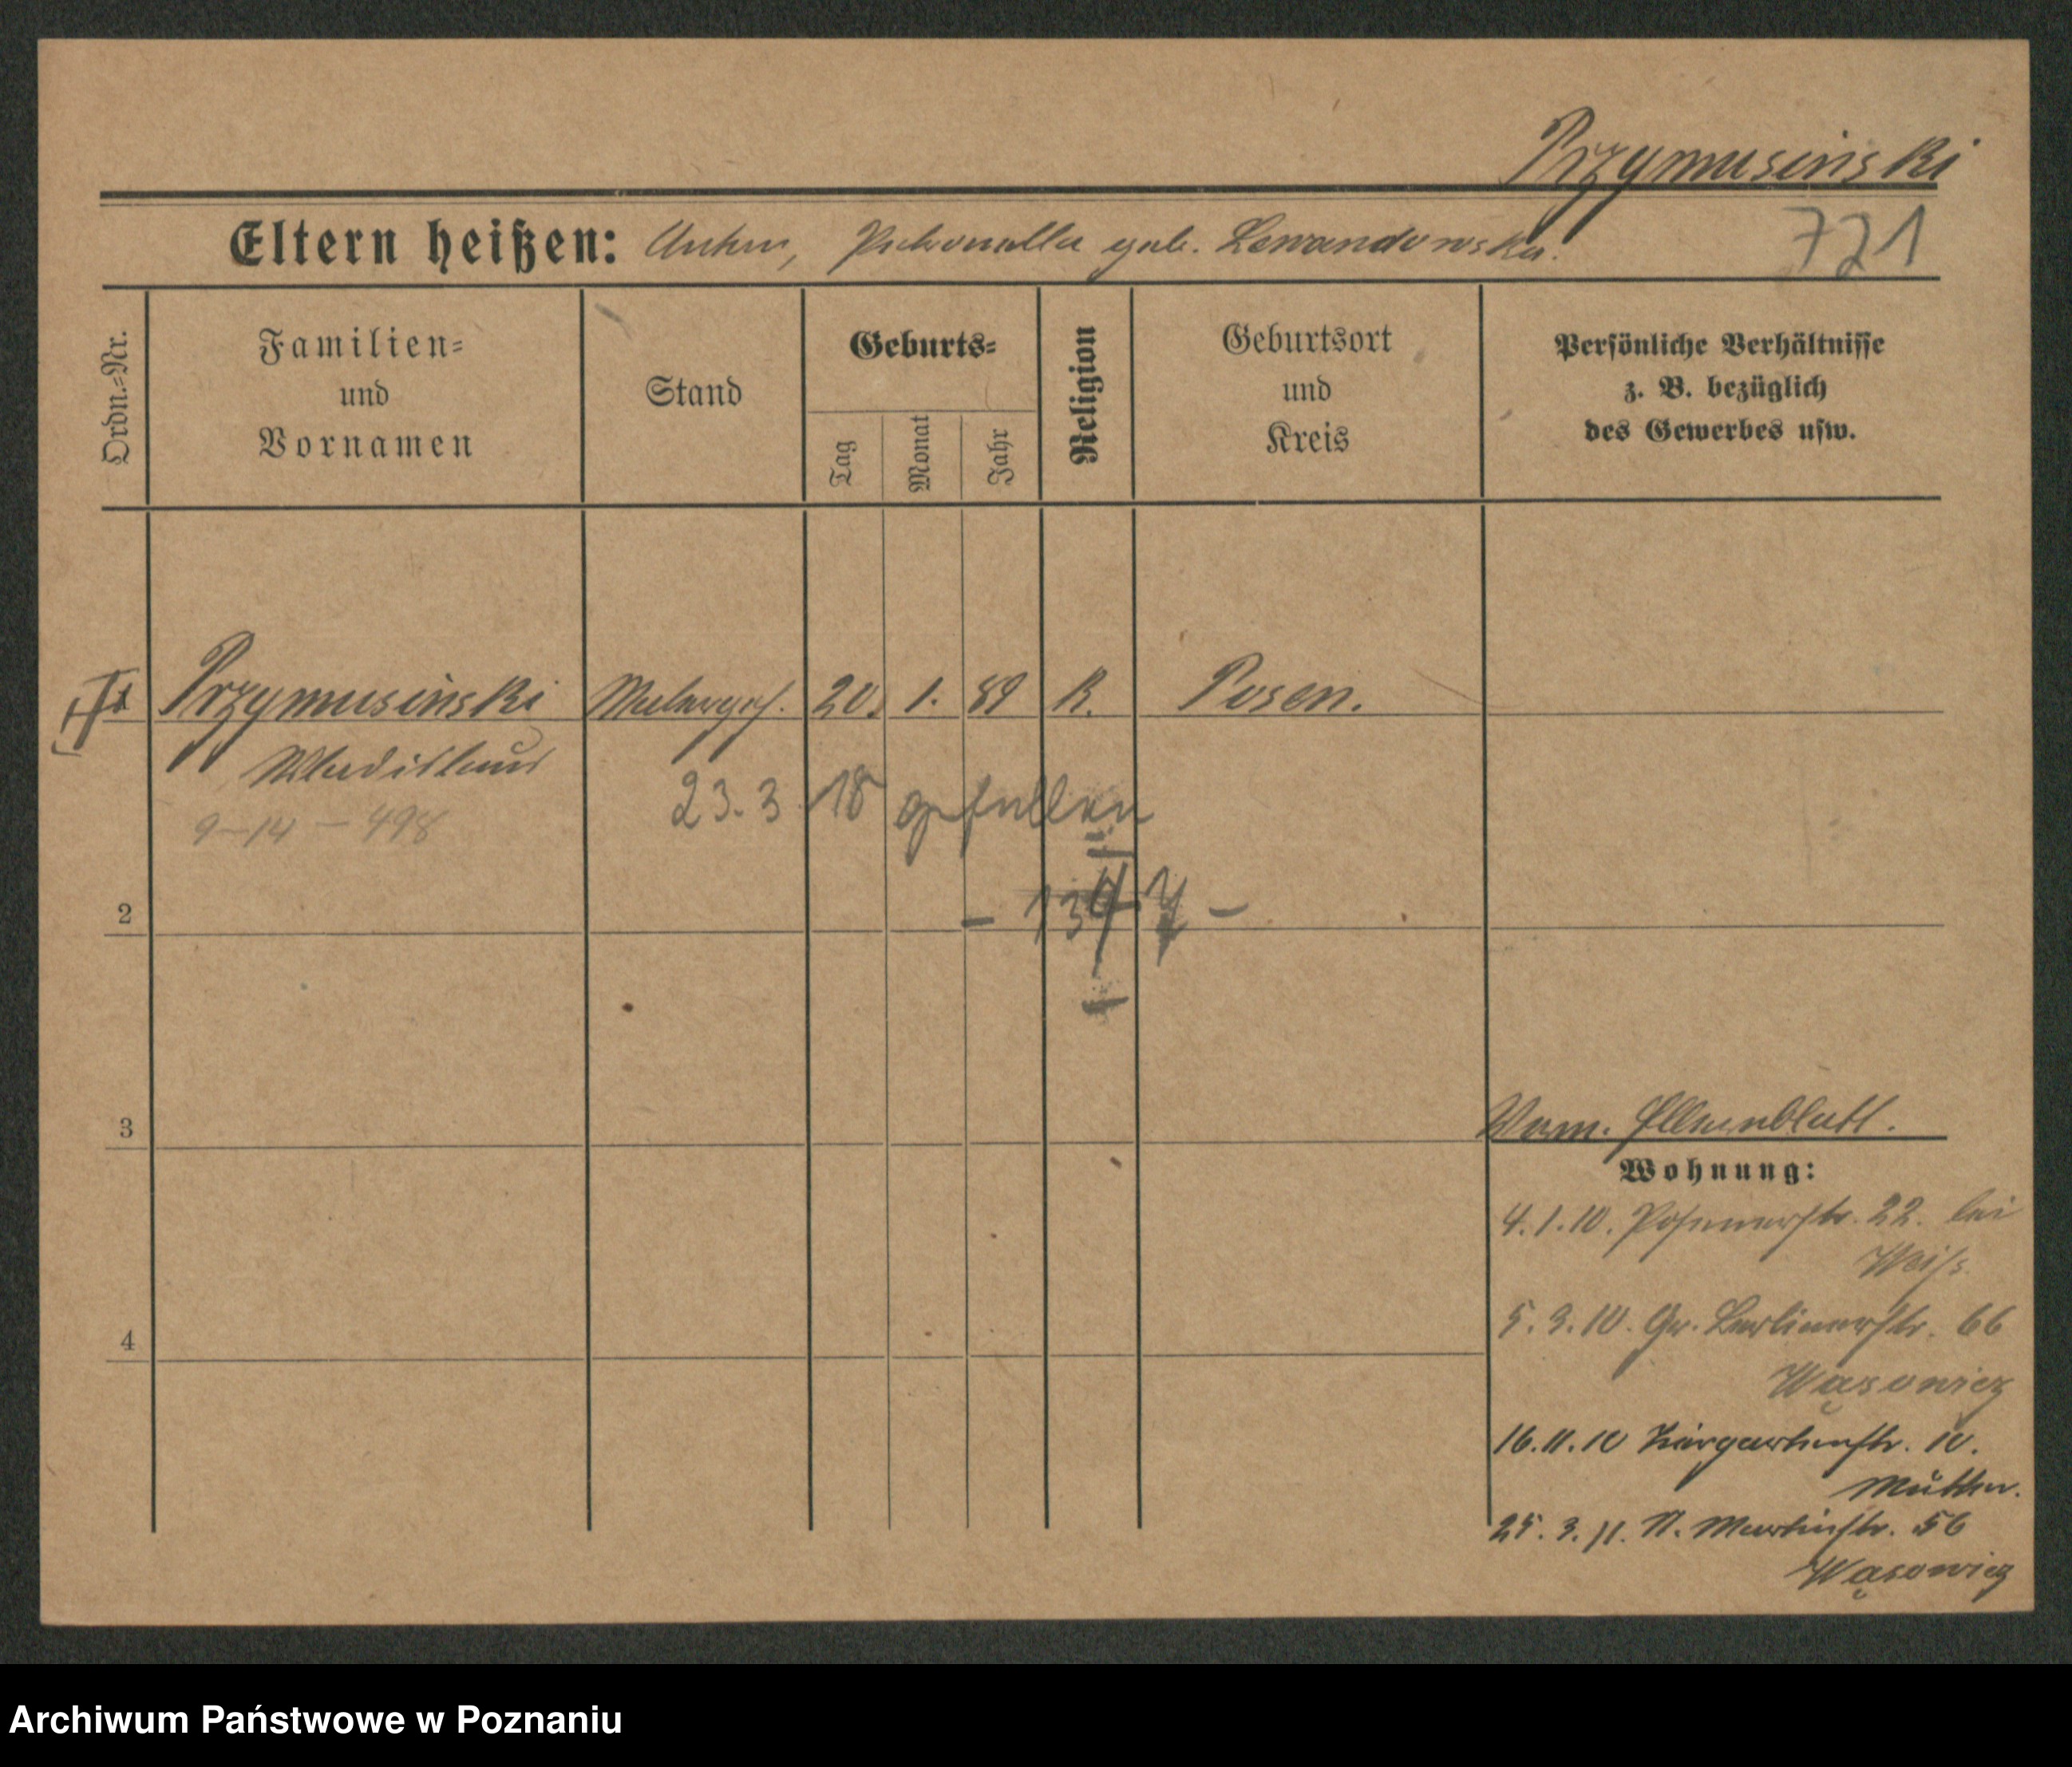 Przymusinski
Eltern heißen: Anton, Petronella geb. Lewandowska.
721
Ordn.=Nr.
Familien=
und
Vornamen
Stand
Geburts=
Tag
Monat
Jahr
Religion
Geburtsort
und
Kreis
Persönliche Verhältnisse
z. B. bezüglich
des Gewerbes usw.
1 Przymusinski Malergeh. 20. 1. 89 K. Posen.
Wladislaus
9-14-498
23.3 18 gefallen
2
3
Vorm.
Wohnung:
4.1.10. Posenerstr. 22. bei
Weiss
5.3.10. Gr. Berlinerstr. 66
4
Wąsowicz
16.11.10 Tiergartenstr. 10.
Mutter.
25.3.11. St. Martinstr. 56
Wąsowicz
Archiwum Państwowe w Poznaniu